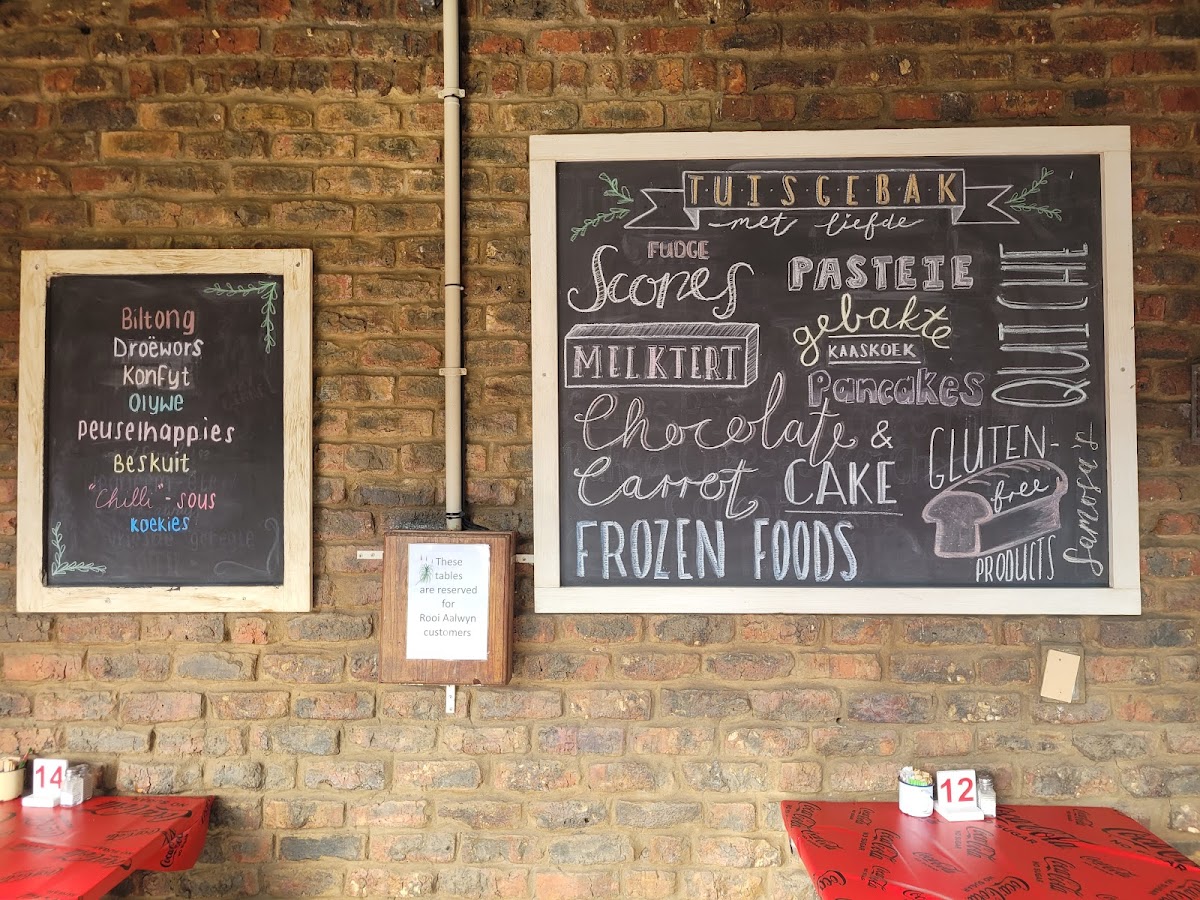 Biltong
Droëwors
Konfyt
Olywe
Peuselhappies
Beskuit
"Chilli"-sous
Koekies
These
tables
are reserved
for
Rooi Aalwyn
customers
TUISGEBAK
met liefde
FUDGE
Scones
MELKTERT
PASTEIE
gebakte
KAASKOEK
Pancakes
QUICHE
Chocolate &
Carrot CAKE
FROZEN FOODS
GLUTEN-
free
PRODUCTS
Samosa's
14
12
Coca-Cola
NO SUGAR
Coca-Cola